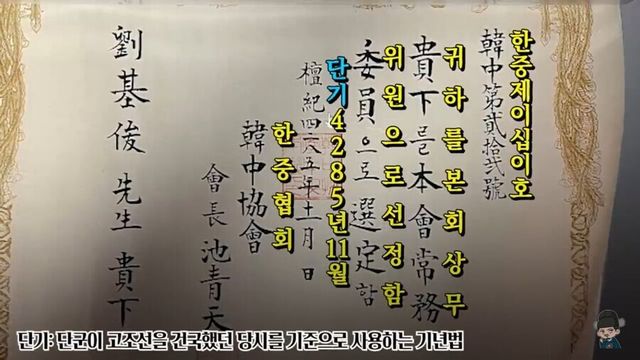 한중제이십이호
韓中第貳拾貳號
귀하를본회상무
貴下를本會常務
위원으로선정함
委員으로選定함
단기4285년11월
檀紀四二八五年十一月 日
한중협회
韓中協會
會長 池青天
劉基俊 先生 貴下
단기: 단군이 고조선을 건국했던 당시를 기준으로 사용하는 기년법